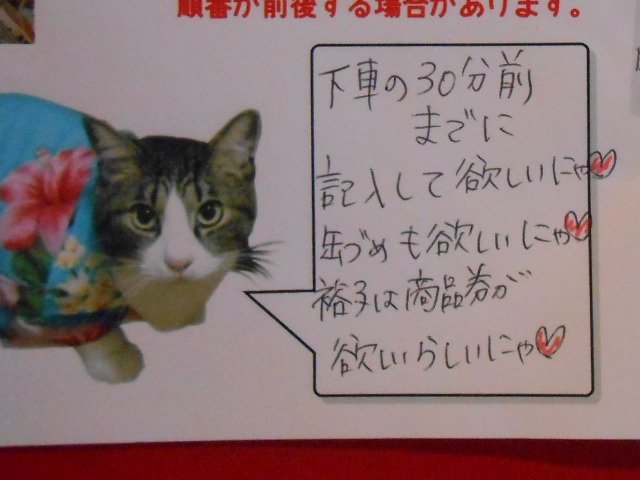 順番が前後する場合があります。
下車の30分前
までに
記入して欲しいにゃ
缶づめも欲しいにゃ
裕子は商品券が
欲しいらしいにゃ